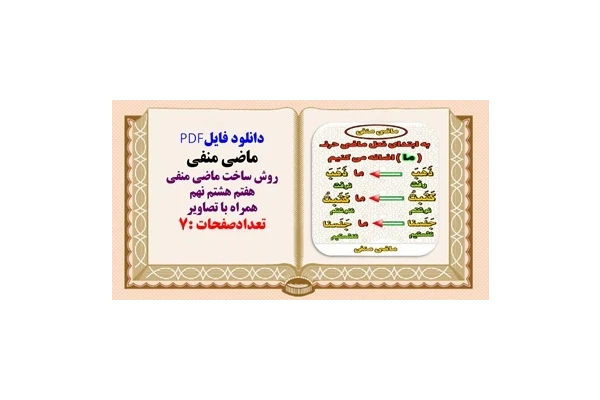 دانلود فایل PDF
ماضی منفی
روش ساخت ماضی منفی
هفتم هشتم نهم
همراه با تصاویر
تعدادصفحات :۷
ماضی منفی
به ابتدای فعل ماضی حرف
( ما ) اضافه می کنیم
ذَهَبَ ما ذَهَبَ
رفت نرفت
کَتَبتُ ما کَتَبتُ
نوشتم ننوشتم
جَلَسنا ما جَلَسنا
نشستیم ننشستیم
ماضی منفی